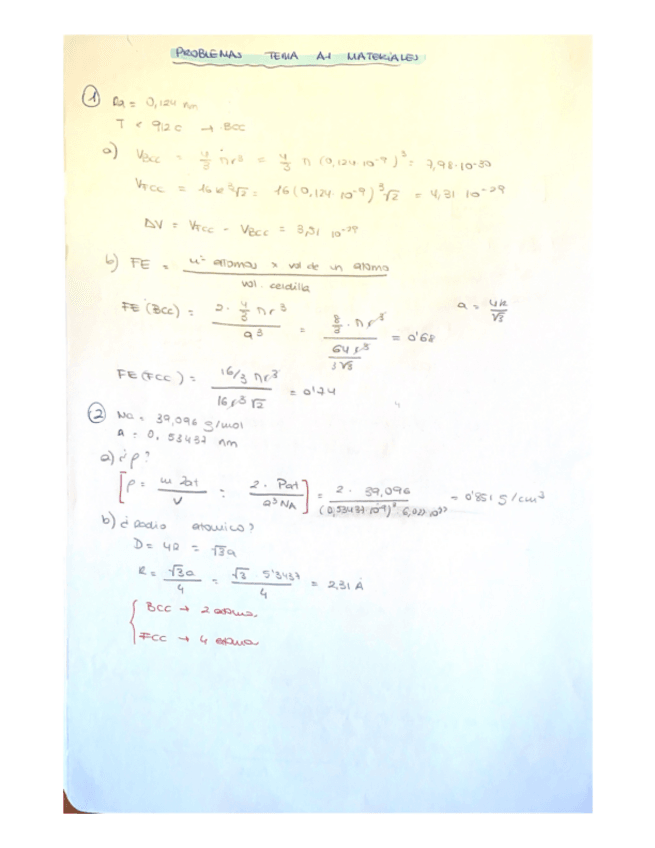 PROBLEMAS TEMA A-1 MATERIALES
① Ra = 0,124 nm
T < 912 C → BCC
a) VBCC = 4/3 πr³ = 4/3 π (0,124·10⁻⁹)³ = 7,98·10⁻³⁰
VFCC = 16R³√2 = 16(0,124·10⁻⁹)³√2 = 4,31 10⁻²⁹
ΔV = VFCC - VBCC = 3,51 10⁻²⁹
b) FE = nº atomos x vol de un atomo / vol. celdilla
FE (BCC) = 2 · 4/3 πr³ / a³ = 8/3 · πr³ / 64r³/3√3 = 0'68 a = 4R/√3
FE (FCC) = 16/3 πr³ / 16r³√2 = 0'74
② Na = 39,096 g/mol
A = 0,53437 nm
a) ¿ρ?
[ρ = m zat / V = 2 · Pat / a³ NA] = 2 · 39,096 / (0,53437·10⁻⁹)³ 6,023·10²³ = 0'851 g/cm³
b) ¿Radio atomico?
D = 4R = √3a
R = √3a / 4 = √3 5'3437 / 4 = 2,31 Å
BCC → 2 atomos
FCC → 4 atomos